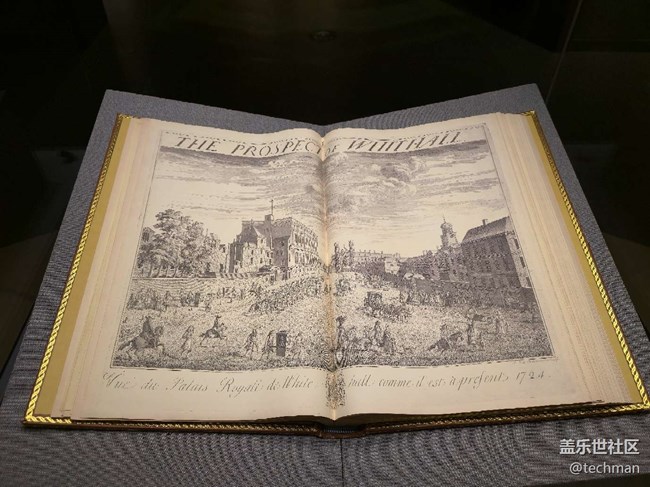 THE PROSPECT OF WHITHALL
Vue du Palais Royall de White hall comme il est a present 1724.
盖乐世社区
@techman